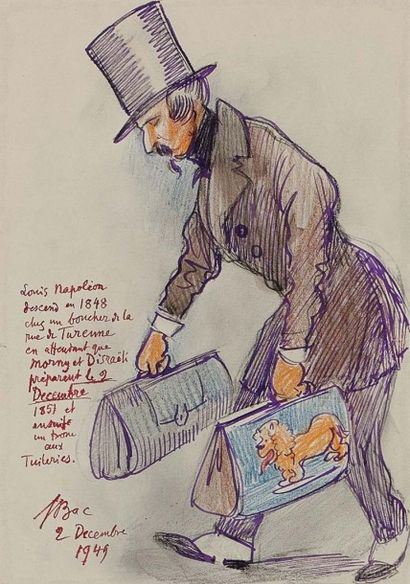 Louis Napoléon
descend en 1848
chez un boucher de la
rue de Turenne
en attendant que
Morny et Disraëli
préparent le 2
Decembre
1851 et
ensuite
un trone
aux
Tuileries.
Bac
2 Decembre
1949